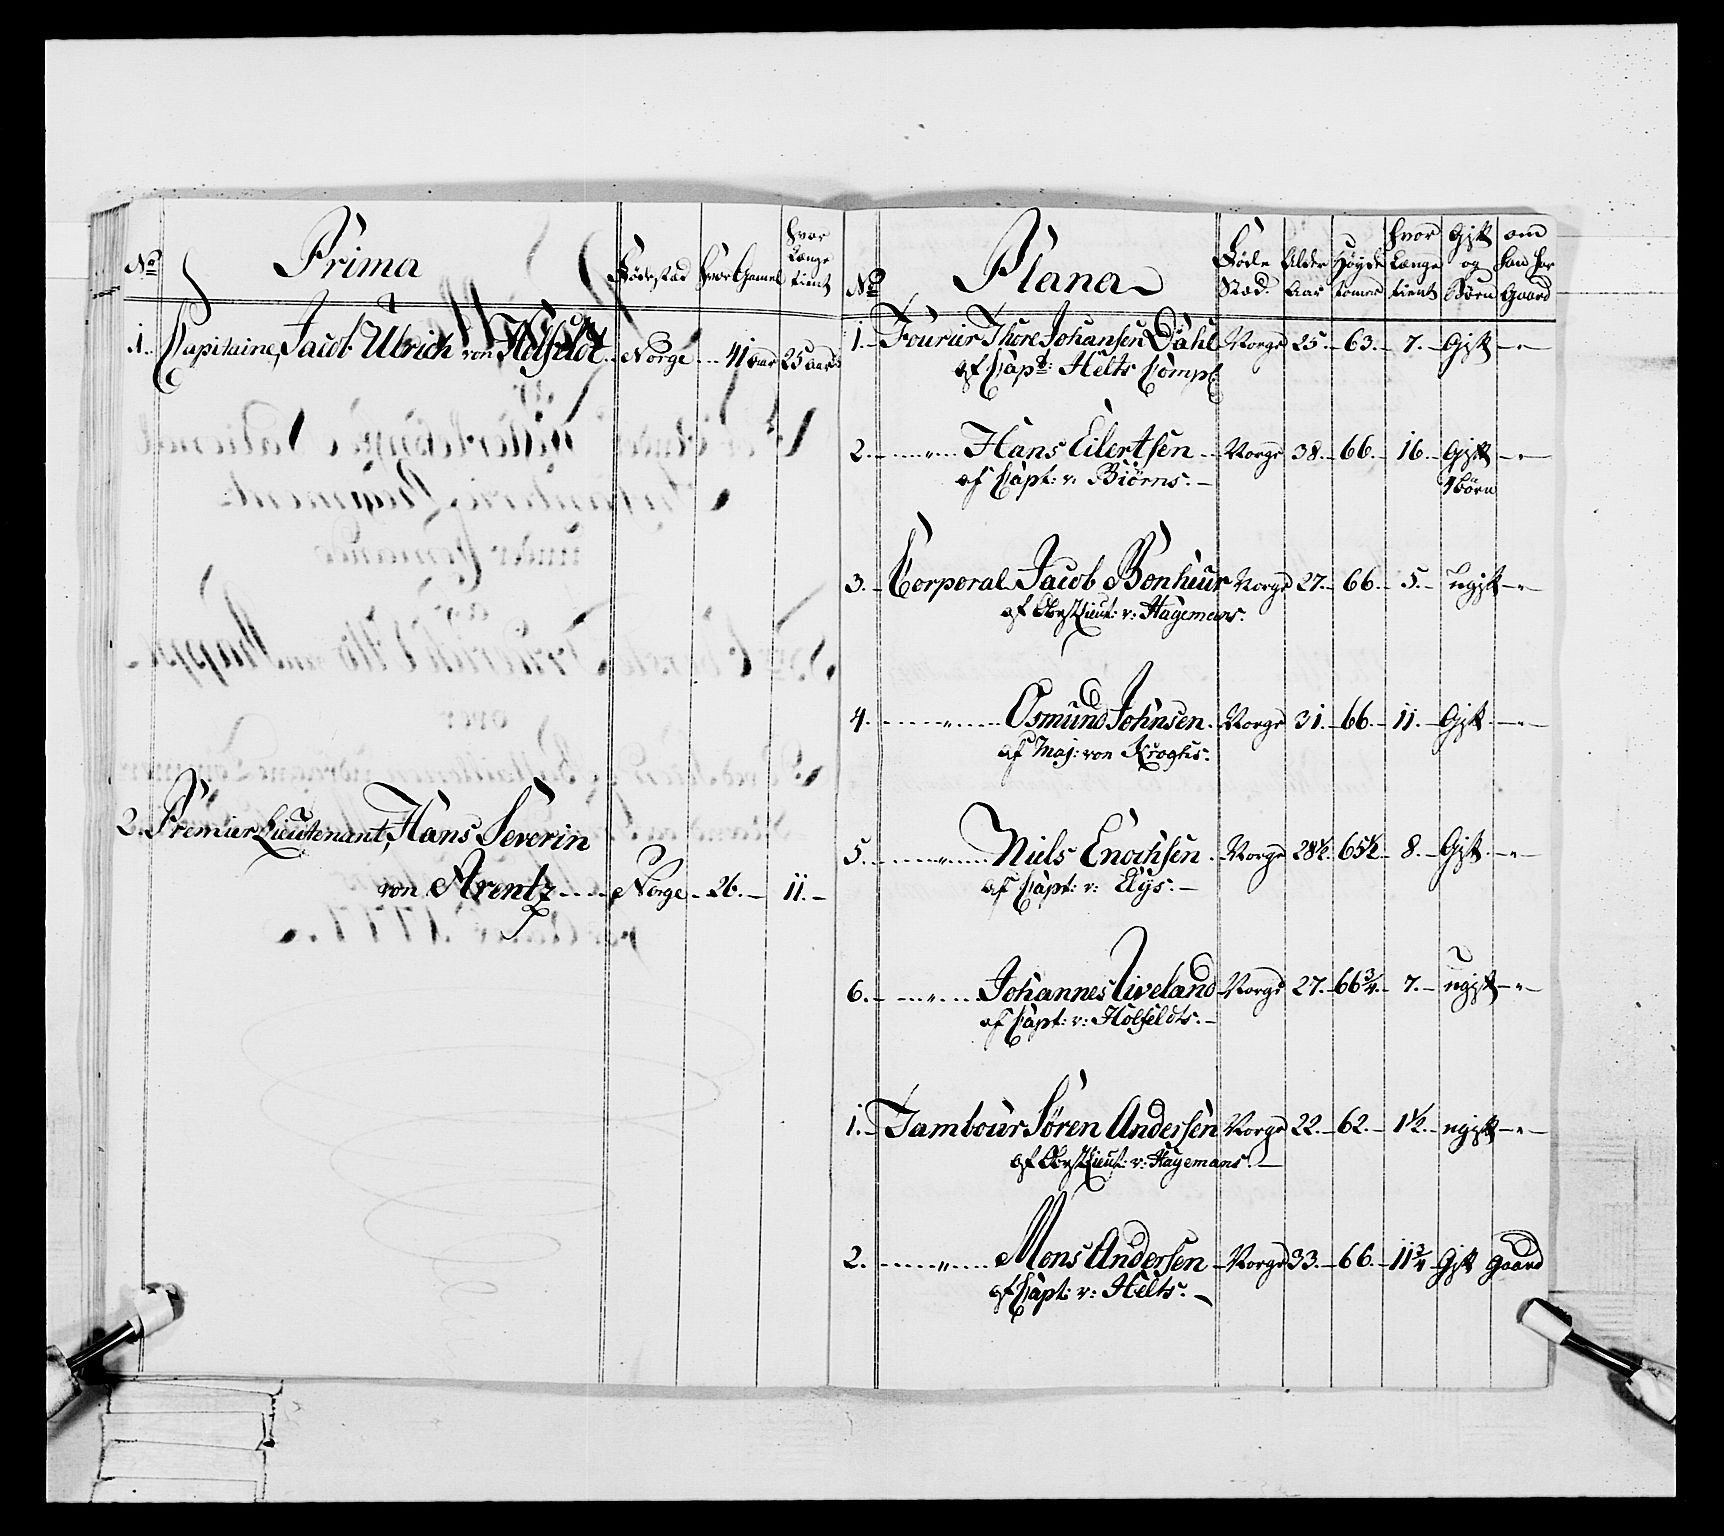 No
Prima
Fødestæd
Hvor Gamel
Hvor
Længe
tient
1. Capitaine, Jacob Ulrich von Holfeldt. Norge 41 aar 25 aar
2. Premier Lieutenant, Hans Severin
von Arentz Norge 26. 11.
No
Plana
Føde
Stæd.
Alder
Aar
Høyde
tomer
Hvor
Længe
tient
Gift
og
Børn
om
han har
Gaard
1. Fourier Thore Johansen Dahl Norge 25. 63. 7. Gift
af Capt: Helts Comp:
2. " Hans Eilertsen Norge 38. 66. 16. Gift
af Capt: v: Biørns. 4 børn
3. Corporal Jacob Bonheur Norge 27. 66. 5. ugift
af Obrstlieut: v: Hagemans.
4. " Osmund Johnsen. Norge 31. 66. 11. Gift
af Maj: von Kroghs.
5. " Niels Enochsen. Norge 28½ 65½ 8. Gift
af Capt: v: Elys.
6. " Johannes Tiveland Norge 27. 66¾. 7. ugift
af Capt: v: Holfeldts.
1. Tambour Søren Andersen Norge 22. 62. 1½. ugift
af Obrstlieut: v: Hagemans.
2. " Mons Andersen Norge 33. 66. 11¾ Gift Gaard
af Capt: v: Helts.